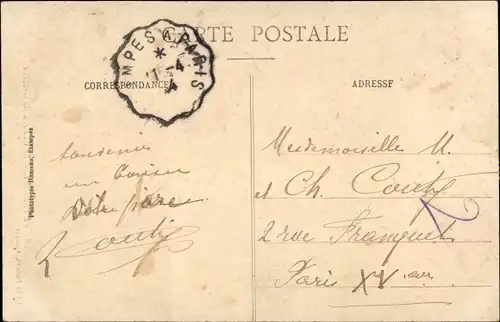 CARTE POSTALE
MPES A PARIS
4
CORRESPONDANCE
ADRESSE
Phototypie Rameau, Etampes
Souvenir
un
Votre
Mesdemoiselle M.
et Ch. Couty
2 rue Franquet
Paris XV arr